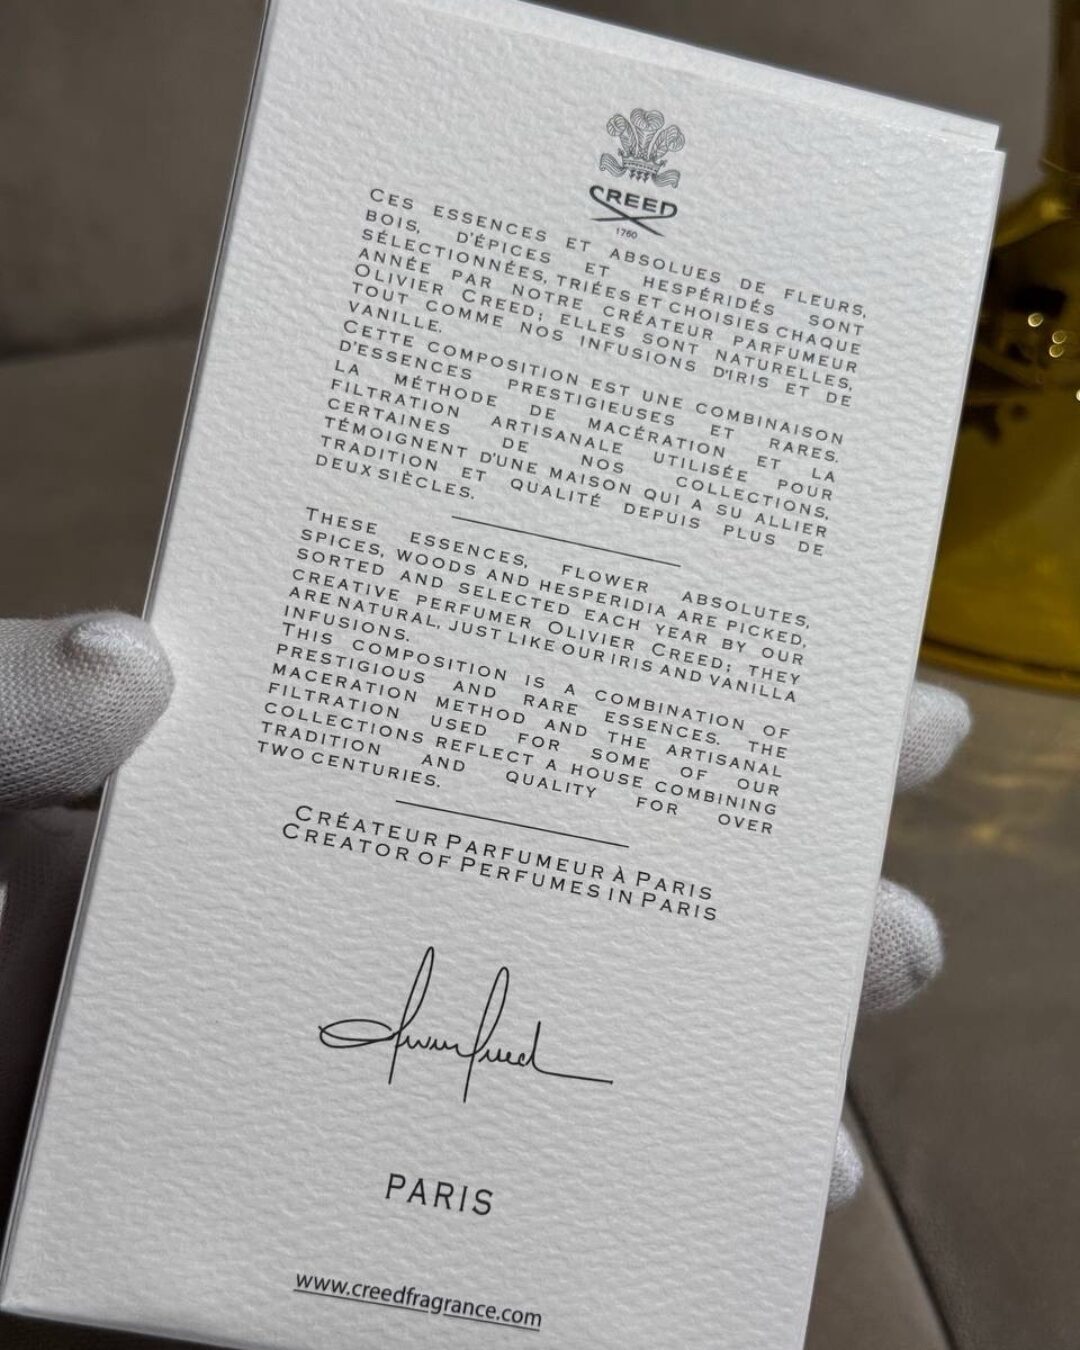 CREED
1760
CES ESSENCES ET ABSOLUES DE FLEURS,
BOIS, D'ÉPICES ET HESPÉRIDÉS SONT
SÉLECTIONNÉES, TRIÉES ET CHOISIES CHAQUE
ANNÉE PAR NOTRE CRÉATEUR PARFUMEUR
OLIVIER CREED; ELLES SONT NATURELLES,
TOUT COMME NOS INFUSIONS D'IRIS ET DE
VANILLE.
CETTE COMPOSITION EST UNE COMBINAISON
D'ESSENCES PRESTIGIEUSES ET RARES.
LA MÉTHODE DE MACÉRATION ET LA
FILTRATION ARTISANALE UTILISÉE POUR
CERTAINES DE NOS COLLECTIONS,
TÉMOIGNENT D'UNE MAISON QUI A SU ALLIER
TRADITION ET QUALITÉ DEPUIS PLUS DE
DEUX SIÈCLES.
THESE ESSENCES, FLOWER ABSOLUTES,
SPICES, WOODS AND HESPERIDIA ARE PICKED,
SORTED AND SELECTED EACH YEAR BY OUR
CREATIVE PERFUMER OLIVIER CREED; THEY
ARE NATURAL, JUST LIKE OUR IRIS AND VANILLA
INFUSIONS.
THIS COMPOSITION IS A COMBINATION OF
PRESTIGIOUS AND RARE ESSENCES. THE
MACERATION METHOD AND THE ARTISANAL
FILTRATION USED FOR SOME OF OUR
COLLECTIONS REFLECT A HOUSE COMBINING
TRADITION AND QUALITY FOR OVER
TWO CENTURIES.
CRÉATEUR PARFUMEUR À PARIS
CREATOR OF PERFUMES IN PARIS
Olivier Creed
PARIS
www.creedfragrance.com